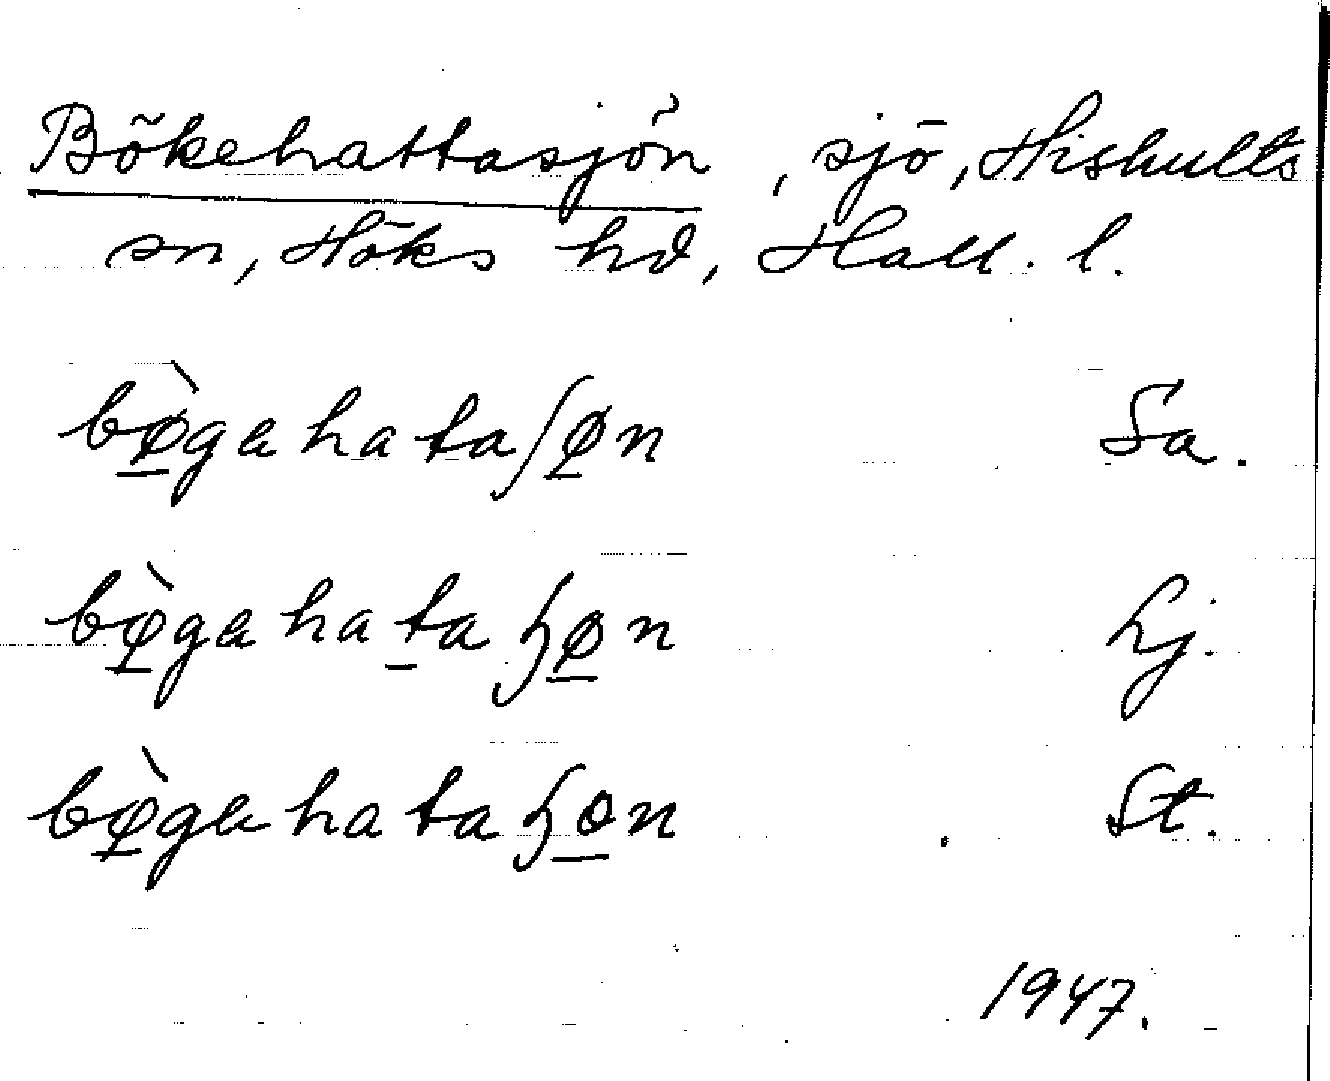 Bökehattasjön, sjö, Hishults
sn, Höks hd, Hall. l.
bø̱̀gahataʃø̱n Sa.
bø̱̀gahaṯaɧø̱n Lj.
bø̱̀gahataɧo̱n St.
1947.